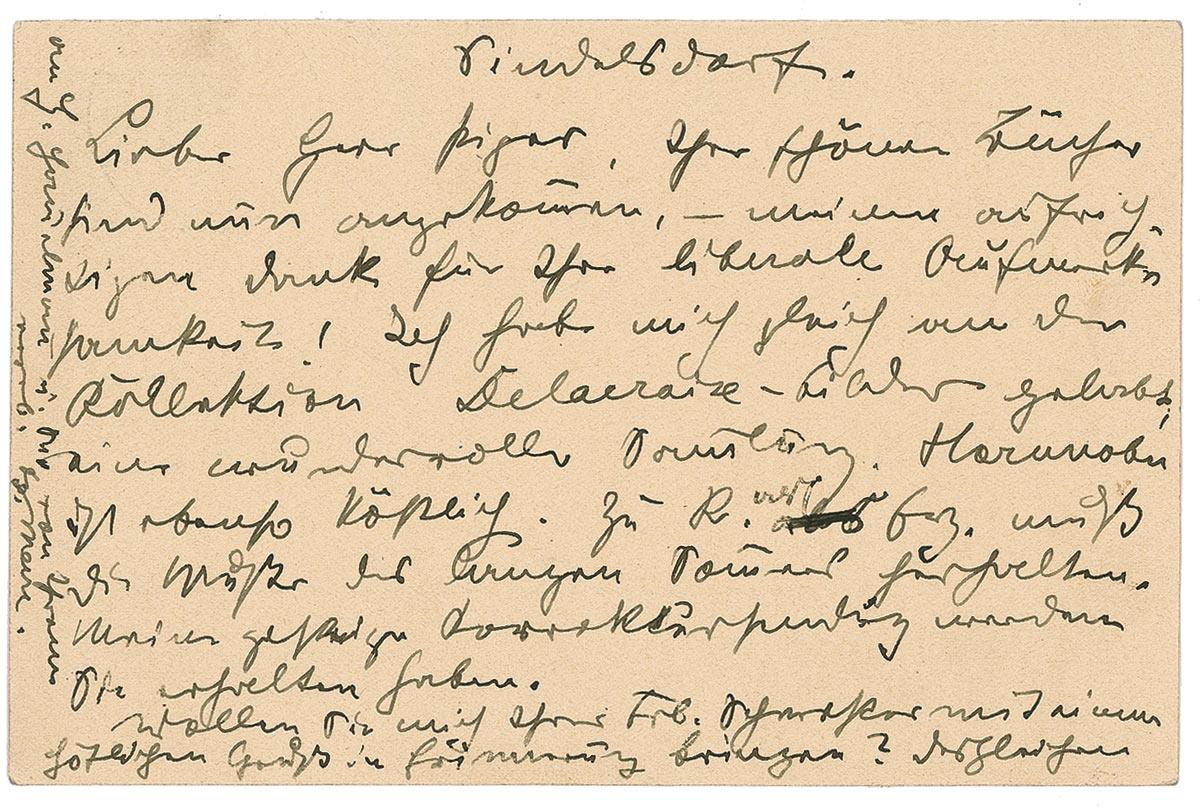 Sindelsdorf.
Lieber Herr Piper, Ihre schönen Bücher
sind nun angekom̅en, – meinen aufrich-
tigen Dank für Ihre liberale Aufmerk-
samkeit! Ich habe mich gleich an der
Kollektion Delacroix-Bilder gelabt,
eine wundervolle Sam̅lung. Harunobu
ist ebenso köstlich. Zu R. bez. muß
die Muße des langen Som̅ers herhalten.
Meine gestrige Korrektursendung werden
Sie erhalten haben.
Wollen Sie mich Ihrer Frl. Schwester mit einem
höflichen Gruß in Erinnerung bringen? desgleichen
an H. u. Sie von Ihrem
ergeb. Fz. Marc.